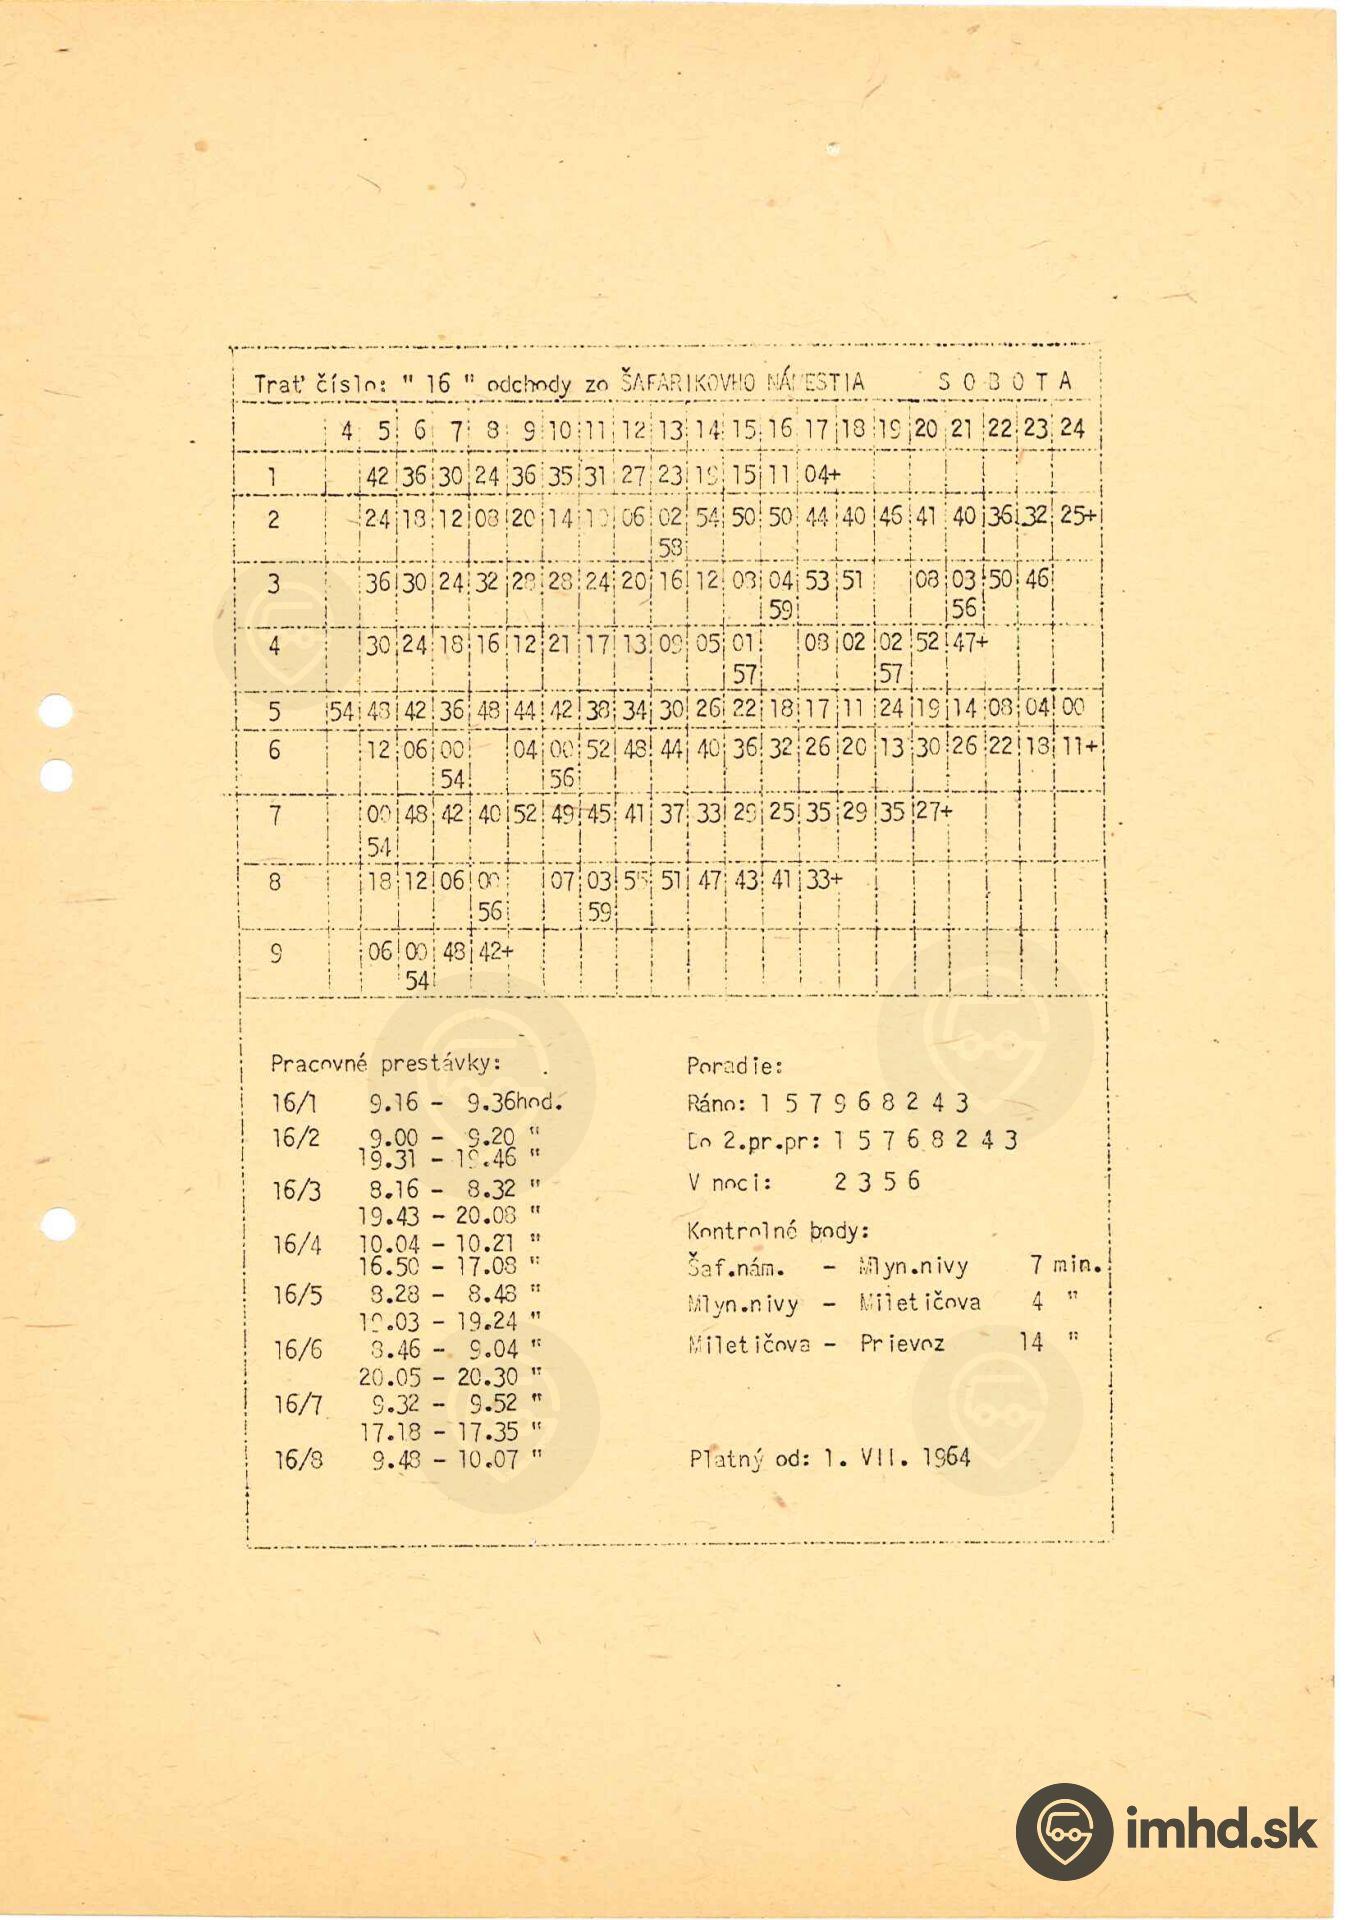 Trať číslo: " 16 " odchody zo ŠAFARIKOVHO NÁMESTIA S O B O T A
4 5 6 7 8 9 10 11 12 13 14 15 16 17 18 19 20 21 22 23 24
1 42 36 30 24 36 35 31 27 23 19 15 11 04+
2 24 18 12 08 20 14 10 06 02 54 50 50 44 40 46 41 40 36 32 25+
58
3 36 30 24 32 28 28 24 20 16 12 08 04 53 51 08 03 50 46
59 56
4 30 24 18 16 12 21 17 13 09 05 01 08 02 02 52 47+
57 57
5 54 48 42 36 48 44 42 38 34 30 26 22 18 17 11 24 19 14 08 04 00
6 12 06 00 04 00 52 48 44 40 36 32 26 20 13 30 26 22 18 11+
54 56
7 00 48 42 40 52 49 45 41 37 33 29 25 35 29 35 27+
54
8 18 12 06 00 07 03 55 51 47 43 41 33+
56 59
9 06 00 48 42+
54
Pracovné prestávky:
16/1 9.16 - 9.36hod.
16/2 9.00 - 9.20 "
19.31 - 19.46 "
16/3 8.16 - 8.32 "
19.43 - 20.08 "
16/4 10.04 - 10.21 "
16.50 - 17.08 "
16/5 8.28 - 8.48 "
19.03 - 19.24 "
16/6 8.46 - 9.04 "
20.05 - 20.30 "
16/7 9.32 - 9.52 "
17.18 - 17.35 "
16/8 9.48 - 10.07 "
Poradie:
Ráno: 1 5 7 9 6 8 2 4 3
Do 2.pr.pr: 1 5 7 6 8 2 4 3
V noci: 2 3 5 6
Kontrolné body:
Šaf.nám. - Mlyn.nivy 7 min.
Mlyn.nivy - Miletičova 4 "
Miletičova - Prievoz 14 "
Platný od: 1. VII. 1964
imhd.sk